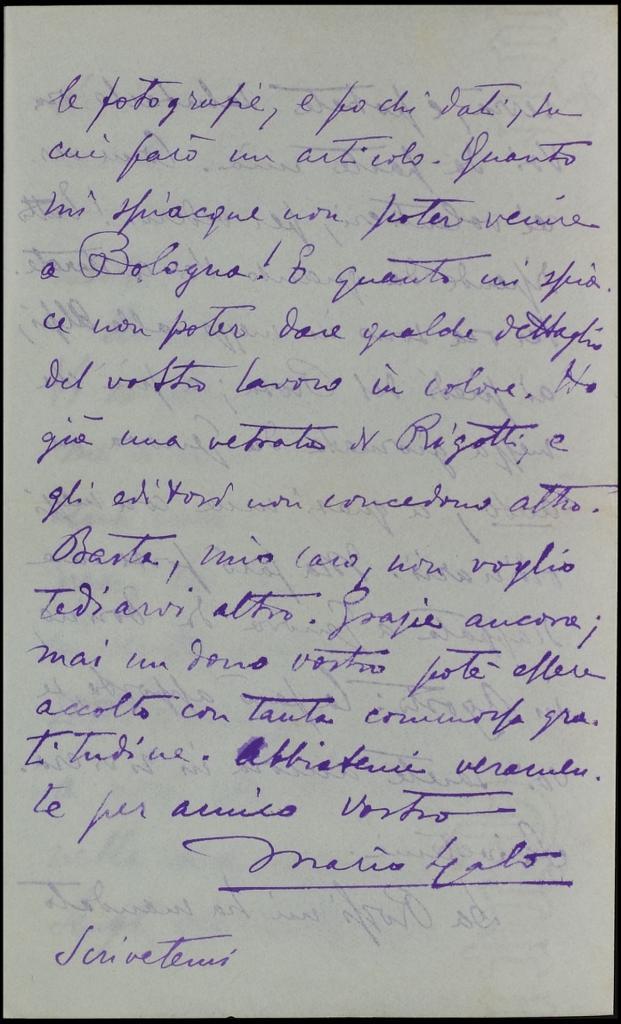 le fotografie, e pochi dati, su
cui farò un articolo. Quanto
mi spiacque non poter venire
a Bologna! E quanto mi spia-
ce non poter dare qualche dettaglio
del vostro lavoro in colore. Ho
già una vetrata di Rigotti, e
gli editori non concedono altro.
Basta, mio caro, non voglio
tediarvi altro. Grazie ancora;
mai un dono vostro potè essere
accolto con tanta commossa gra-
titudine. Abbiatemi veramen-
te per amico vostro
Mario
Scrivetemi